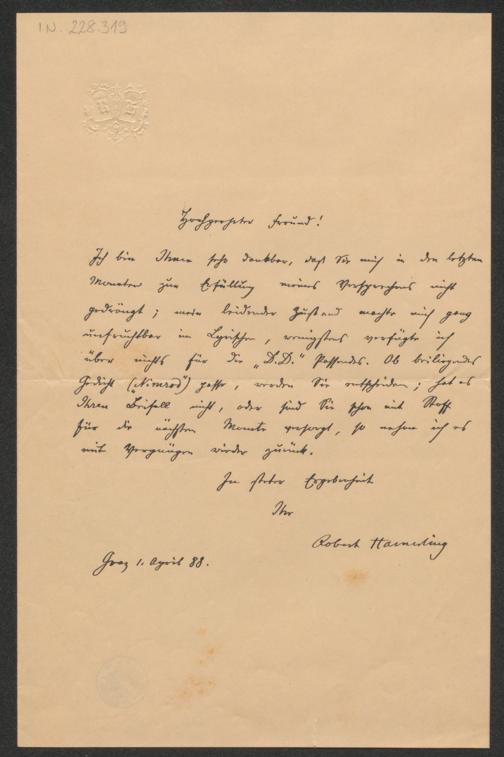 I.N. 228.319
Hochgeehrter Freund!
Ich bin Ihnen sehr dankbar, daß Sie mich in den letzten
Monaten zur Erfüllung meines Versprechens nicht
gedrängt; mein leidender Zustand machte mich ganz
unfruchtbar im Lyrischen, wenigstens verfügte ich
über nichts für die „D.D.“ Passendes. Ob beiliegendes
Gedicht („Nimrod“) passe, werden Sie entscheiden; hat es
Ihren Beifall nicht, oder sind Sie schon mit Stoff
für die nächsten Monate versorgt, so nehme ich es
mit Vergnügen wieder zurück.
In steter Ergebenheit
Ihr
Robert Hamerling
Graz 1. April 88.